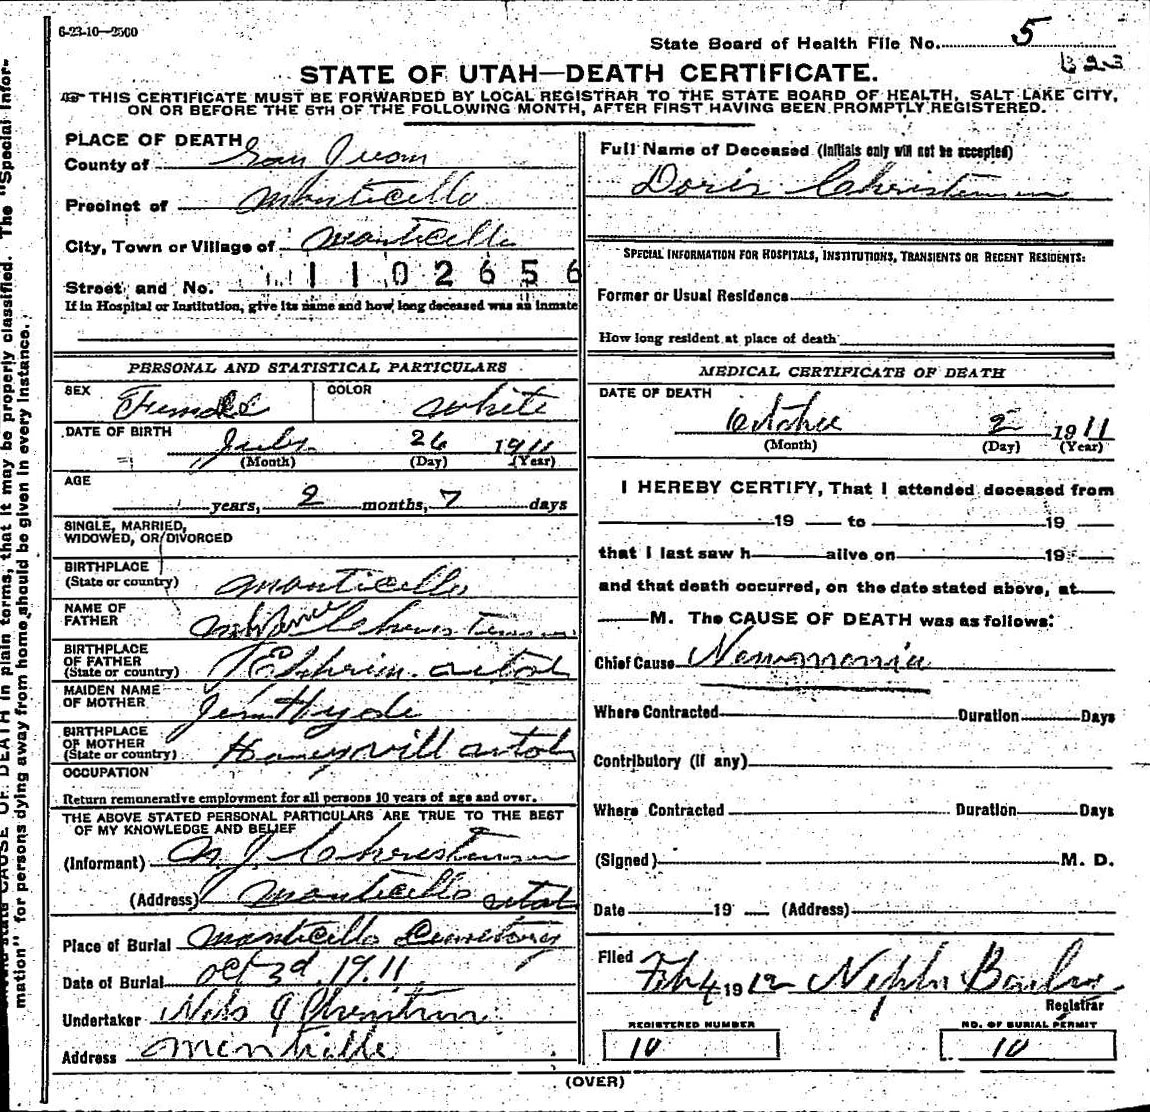 6-23-10—2500
State Board of Health File No. 5
B 23
STATE OF UTAH—DEATH CERTIFICATE.
THIS CERTIFICATE MUST BE FORWARDED BY LOCAL REGISTRAR TO THE STATE BOARD OF HEALTH, SALT LAKE CITY,
ON OR BEFORE THE 5TH OF THE FOLLOWING MONTH, AFTER FIRST HAVING BEEN PROMPTLY REGISTERED.
PLACE OF DEATH
County of San Juan
Precinct of Monticello
City, Town or Village of Monticello
1102656
Street and No.
If in Hospital or Institution, give its name and how long deceased was an inmate
PERSONAL AND STATISTICAL PARTICULARS
SEX Female COLOR White
DATE OF BIRTH July 26 1911
(Month) (Day) (Year)
AGE
years, 2 months, 7 days
SINGLE, MARRIED,
WIDOWED, OR DIVORCED
BIRTHPLACE
(State or country) Monticello
NAME OF
FATHER
BIRTHPLACE
OF FATHER
(State or country) Ephrim utah
MAIDEN NAME
OF MOTHER Hyde
BIRTHPLACE
OF MOTHER
(State or country) Honeyvill utah
OCCUPATION
Return remunerative employment for all persons 10 years of age and over.
THE ABOVE STATED PERSONAL PARTICULARS ARE TRUE TO THE BEST
OF MY KNOWLEDGE AND BELIEF
(Informant) N J Christensen
(Address) Monticello utah
Place of Burial Monticello Cemetery
Date of Burial Oct 3d 1911
Undertaker Nels
Address Monticello
Full Name of Deceased (Initials only will not be accepted)
Doris Christensen
SPECIAL INFORMATION FOR HOSPITALS, INSTITUTIONS, TRANSIENTS OR RECENT RESIDENTS:
Former or Usual Residence
How long resident at place of death
MEDICAL CERTIFICATE OF DEATH
DATE OF DEATH
October 2 1911
(Month) (Day) (Year)
I HEREBY CERTIFY, That I attended deceased from
19 to 19
that I last saw h alive on 19
and that death occurred, on the date stated above, at
M. The CAUSE OF DEATH was as follows:
Chief Cause Newmonia
Where Contracted Duration Days
Contributory (if any)
Where Contracted Duration Days
(Signed) M. D.
Date 19 (Address)
Filed Feb 4 1912 Nephi
Registrar
REGISTERED NUMBER
10
NO. OF BURIAL PERMIT
10
(OVER)
CAUSE OF DEATH in plain terms, that it may be properly classified. The "Special Infor-
mation" for persons dying away from home should be given in every instance.